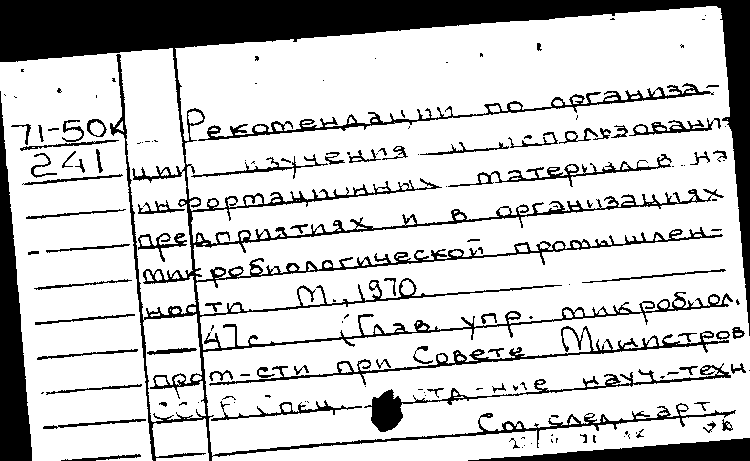 71-50к
241
Рекомендации по организа-
ции изучения и использования
информационных материалов на
предприятиях и в организациях
микробиологической промышлен-
ности. М., 1970.
47с. (Глав. упр. микробиол.
пром-сти при Совете Министров
СССР. Спец. отд-ние науч.-техн.
См. след. карт.